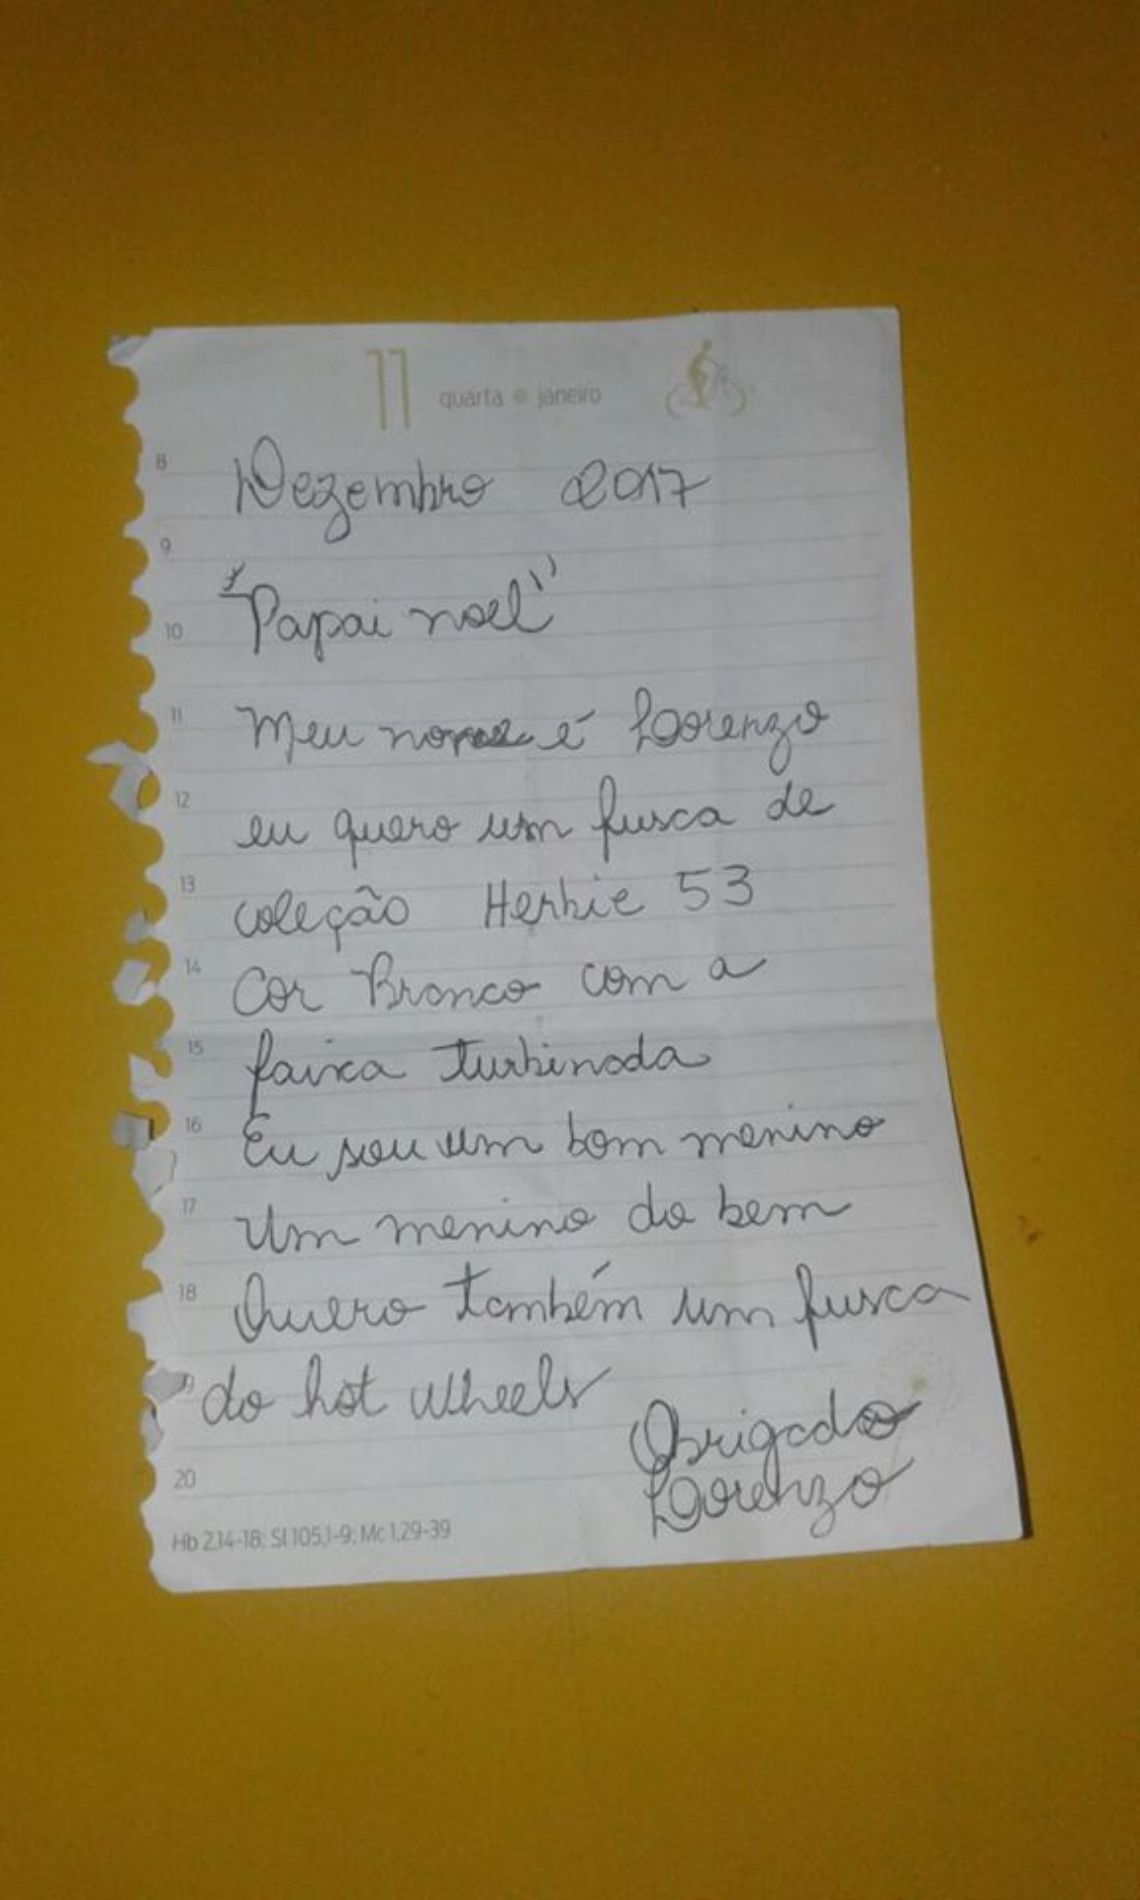 11 quarta janeiro
8
Dezembro 2017
9
"Papai noel"
10
11
Meu nome é Lorenzo
12
eu quero um fusca de
13
coleção Herbie 53
14
Cor Branco com a
15
faixa turbinada
16
Eu sou um bom menino
17
Um menino do bem
18
Quero também um fusca
19
do hot wheels
Obrigado
Lorenzo
20
Hb 2,14-18; Sl 105,1-9; Mc 1,29-39